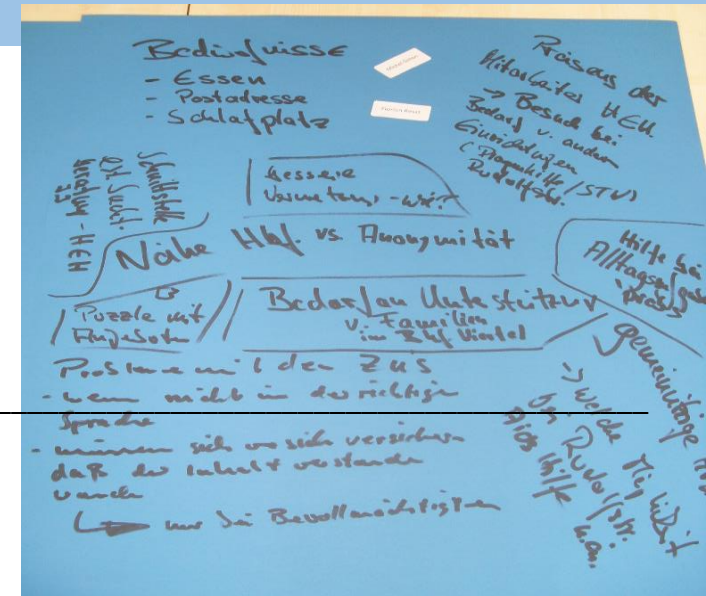 Bedürfnisse
- Essen
- Postadresse
- Schlafplatz
Praxis aus der
Mitarbeiter HEH.
→ Besuch bei
Bedarf v. andern
Einrichtungen
(Drogenhilfe / STV)
Rudolfstr.
Schnittstelle
Sucht-
beratung - HEH
bessere
Vernetzung - wie?
Nähe Hbf. vs. Anonymität
Hilfe bei
Puzzle mit
Angeboten
Bedarf an Unterstützung
v. Familien
im Bhf Viertel
Probleme mit den ZUs
- wenn nicht in der richtigen
Sprache
- müssen sich versichern
daß der Inhalt verstanden
wurde
↳ nur bei Bevollmächtigten
gemeinnützige
→ Welche Möglichkeit
bei Rudolfstr.
Aids Hilfe u.a.